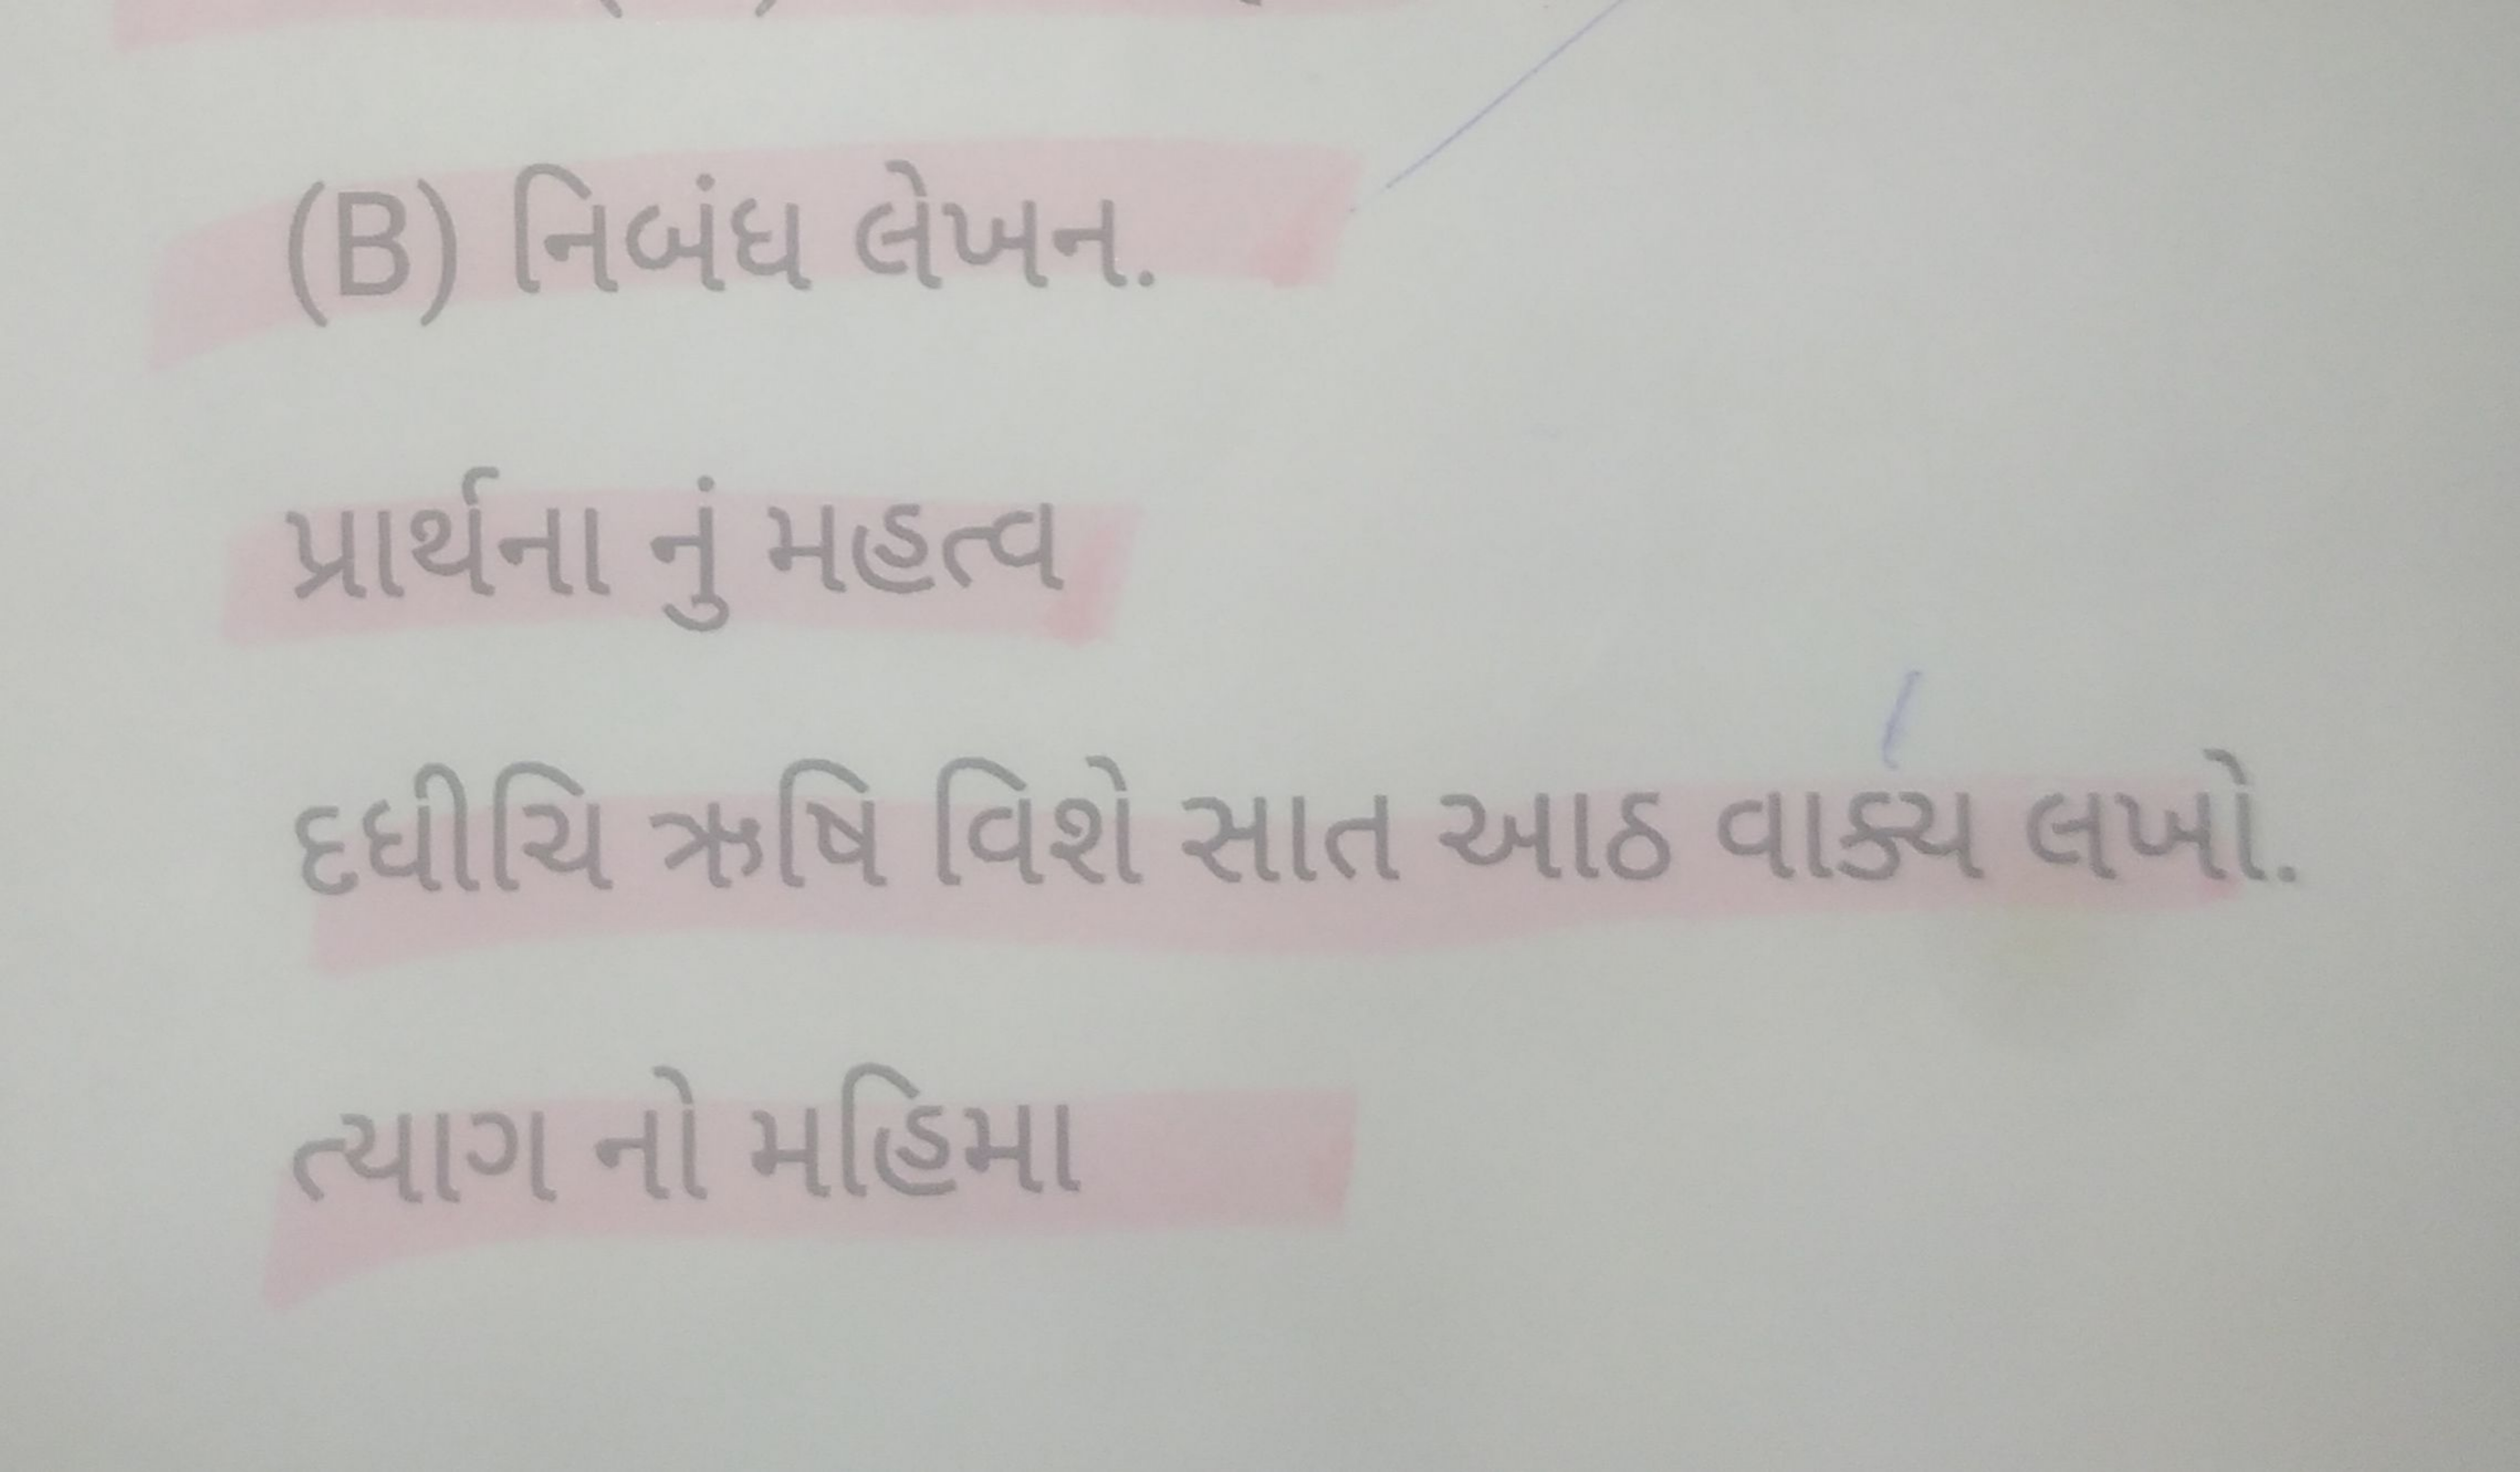 (B) નિબંધ લેખન.
પ્રાર્થના નું મહત્વ
દધીચિ ઋષિ વિશે સાત આઠ વાક્ય લખો.
ત્યાગ નો મહિમા